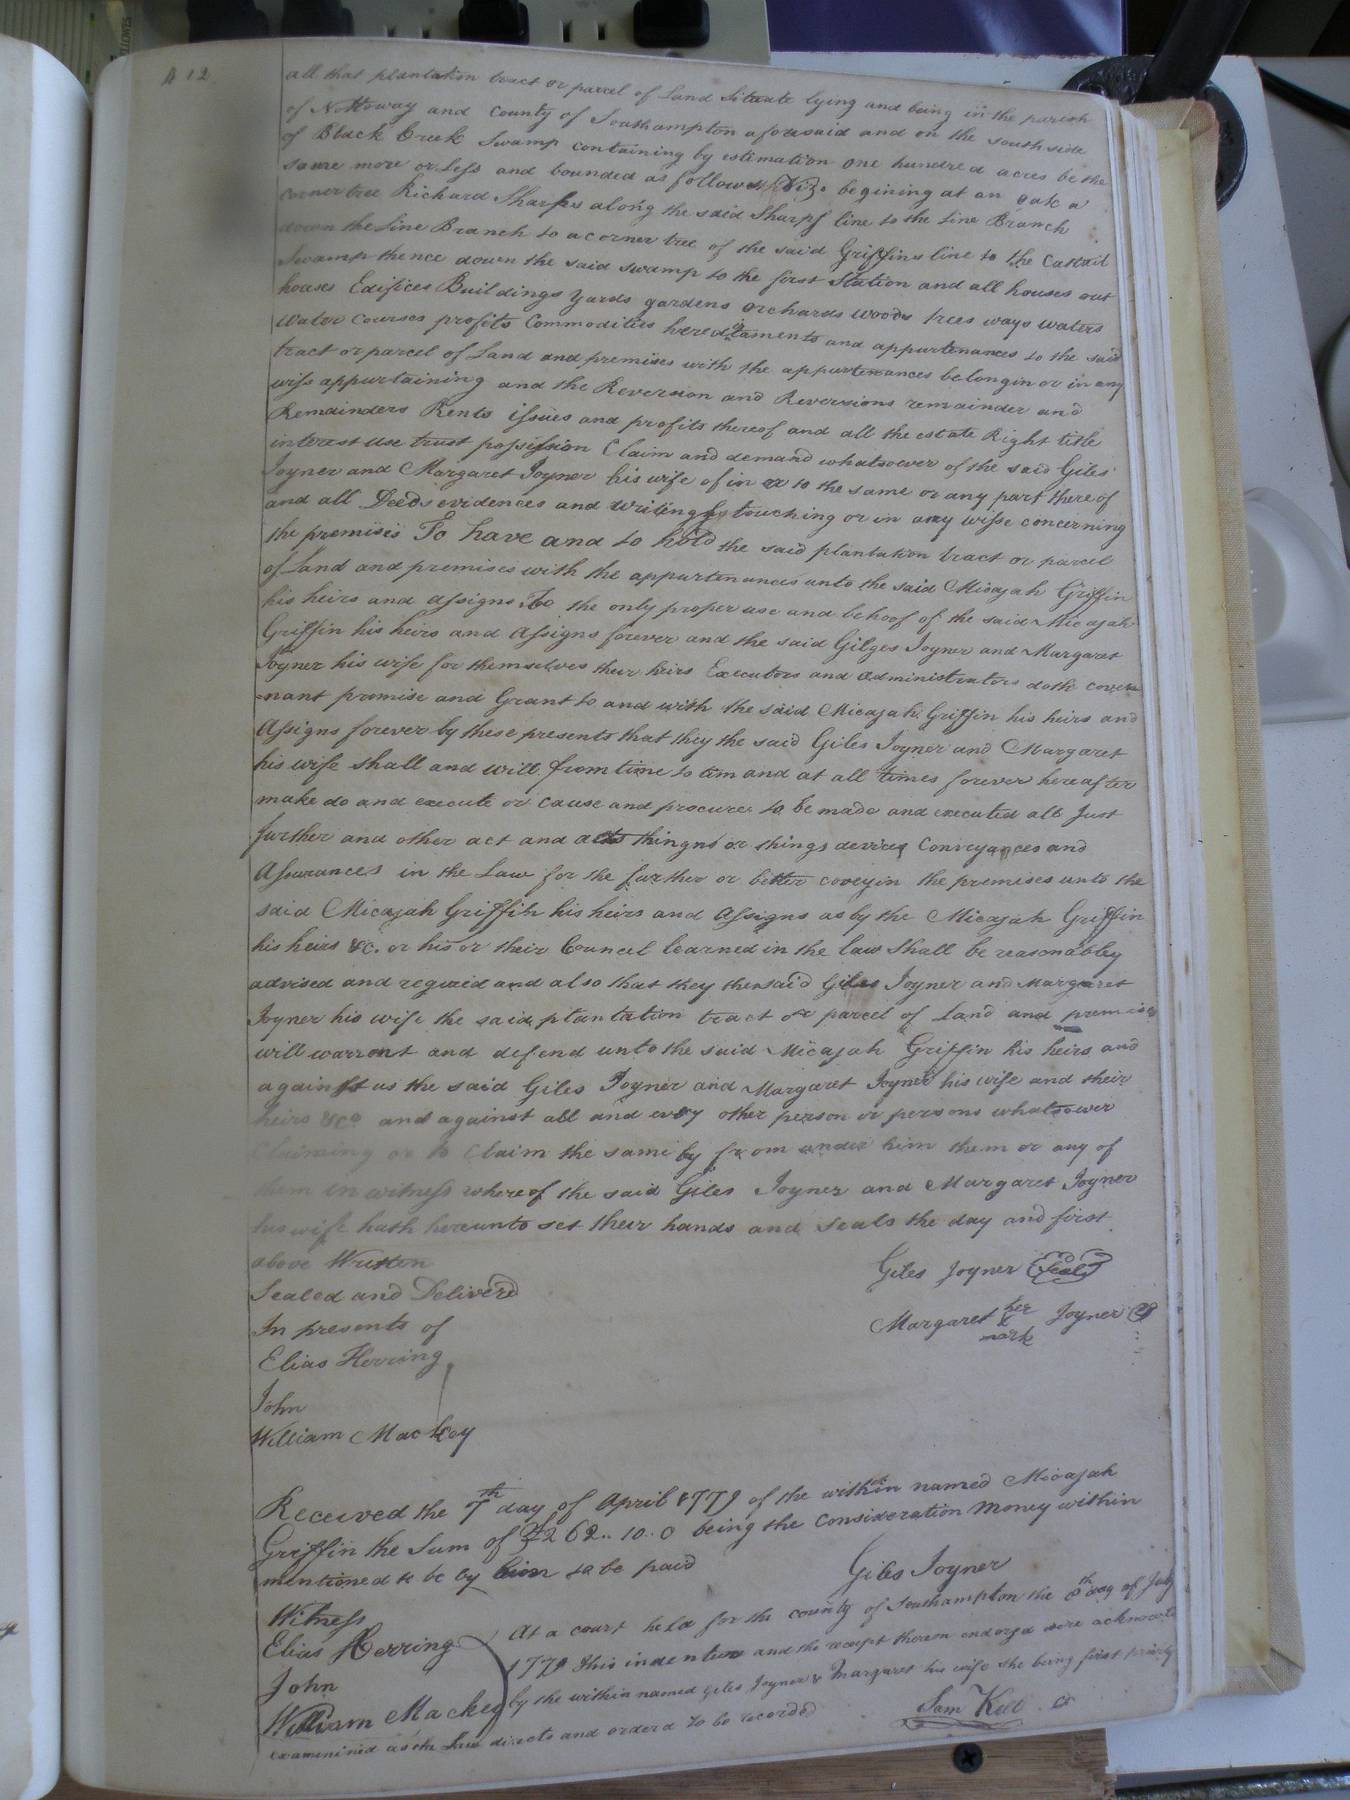 412
all that plantation tract or parcel of Land Situate lying and being in the parish
of Nottoway and County of Southampton aforesaid and on the south side
of Black Creek Swamp containing by estimation one hundred acres be the
same more or Less and bounded as follows Viz. begining at an oak a
corner tree Richard Sharps along the said Sharps line to the Line Branch
down the Line Branch to a corner tree of the said Griffins line to the
Swamp thence down the said swamp to the first Station and all houses out
houses Edifices Buildings yards gardens orchards woods trees ways waters
Water courses profits Commodities hereditaments and appurtenances to the said
tract or parcel of Land and premises with the appurtenances belongin or in any
wiss appurtaining and the Reversion and Reversions remainder and
Remainders Rents issues and profits thereof and all the estate Right title
interest use trust possession Claim and demand whatsower of the said Giles
Joyner and Margaret Joyner his wife of in or to the same or any part there of
and all Deeds evidences and writings touching or in any wisse concerning
the premises To have and to hold the said plantation tract or parcel
of Land and premises with the appurtenances unto the said Micajah Griffin
his heirs and assigns To the only proper use and behoof of the said Micajah
Griffin his heirs and Assigns forever and the said Gilges Joyner and Margaret
Joyner his wife for themselves their heirs Executors and administrators doth cove
=nant promise and Grant to and with the said Micajah Griffin his heirs and
Assigns forever by these presents that they the said Giles Joyner and Margaret
his wife shall and will from time to tim and at all times forever hereafter
make do and execute or cause and procure to be made and executed all Just
further and other act and acts thingns or things devices Conveyances and
Assurances in the Law for the further or better coveyin the premises unto the
said Micajah Griffin his heirs and Assigns as by the Micajah Griffin
his heirs &c. or his or their Council learned in the law Shall be reasonabley
advised and requaid and also that they the said Giles Joyner and Margaret
Joyner his wife the said plantation tract or parcel of Land and premises
will warrant and defend unto the said Micajah Griffin his heirs and
against us the said Giles Joyner and Margaret Joyner his wife and their
heirs &c and against all and every other person or persons whatsower
Claiming or to Claim the same by from under him them or any of
them in witness whereof the said Giles Joyner and Margaret Joyner
his wife hath hereunto set their hands and Seals the day and first
above Written
Giles Joyner (Seal)
Sealed and Deliverd
In presents of
Margaret her X mark Joyner
Elias Herring
John
William Mackey
Received the 7th day of April 1779 of the within named Micajah
Griffin the Sum of £262..10..0 being the consideration money within
mentioned to be by him to be paid
Giles Joyner
Witness
Elias Herring
John
William Mackey
At a court held for the county of Southampton the 8th day of July
1779 This indenture and the receipt thereon endorsd were acknowl
by the within named Giles Joyner & Margaret his wife she being first privily
examinined as the Law directs and orderd to be recorded
Sam Kello Cs